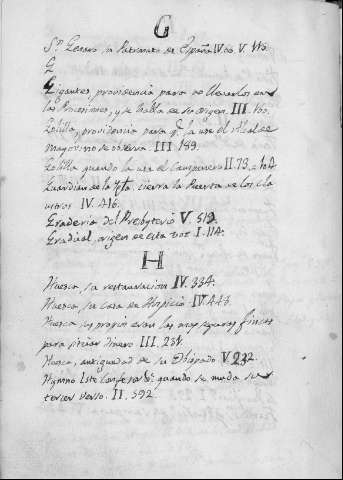 G
Sn. Genaro, su Patronato de España IV. 66. V. 116.
G
Gigantes, providencia para no llevarlos en
las Procesiones, y se habla de su origen III. 166.
Golilla, providencia para q. la use el Alcalde
mayor, no se observa. III 189.
Golilla quando la usa el Campanero II. 73, 104
Guardian de la cierra la Puerta de los Cla
ustros IV. 416.
Graderia del Presbyterio V. 512
Gradual, origen de esta voz I. 114.
H
Huesca, su restauracion IV. 334.
Huesca, su casa de Hospicio IV. 443
Huesca sus propios eran las mas seguras fincas
para sitiar dinero III. 231
Huesca, antiguedad de su Obispado V. 232.
Hymno Iste Confesor &c. quando se muda su
tercer verso. II. 592.